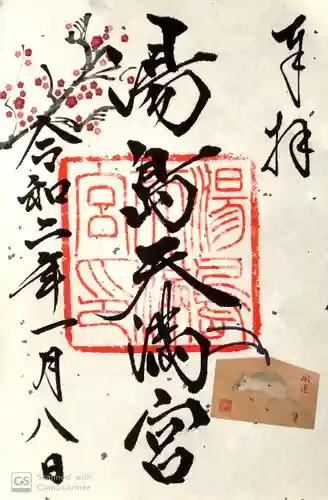 奉拝
湯島天満宮
令和二年一月八日
開運
CS Scanned with
CamScanner